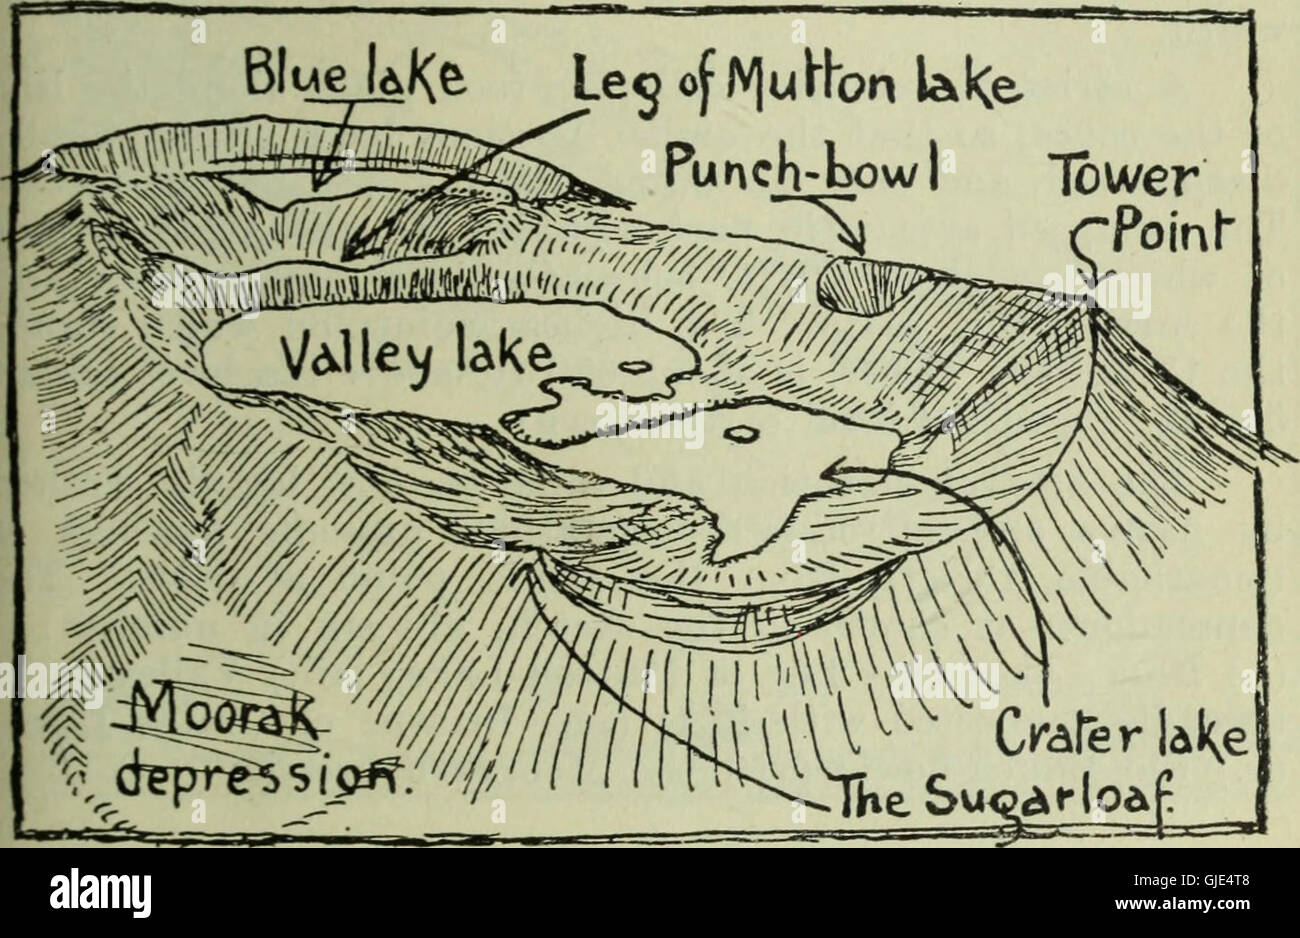 Blue lake
Leg of Mutton lake
Punch-bowl
Tower
Point
Valley lake
Moorak
depression.
Crater lake
The Sugarloaf.
alamy stock photo
GJE4T8
www.alamy.com